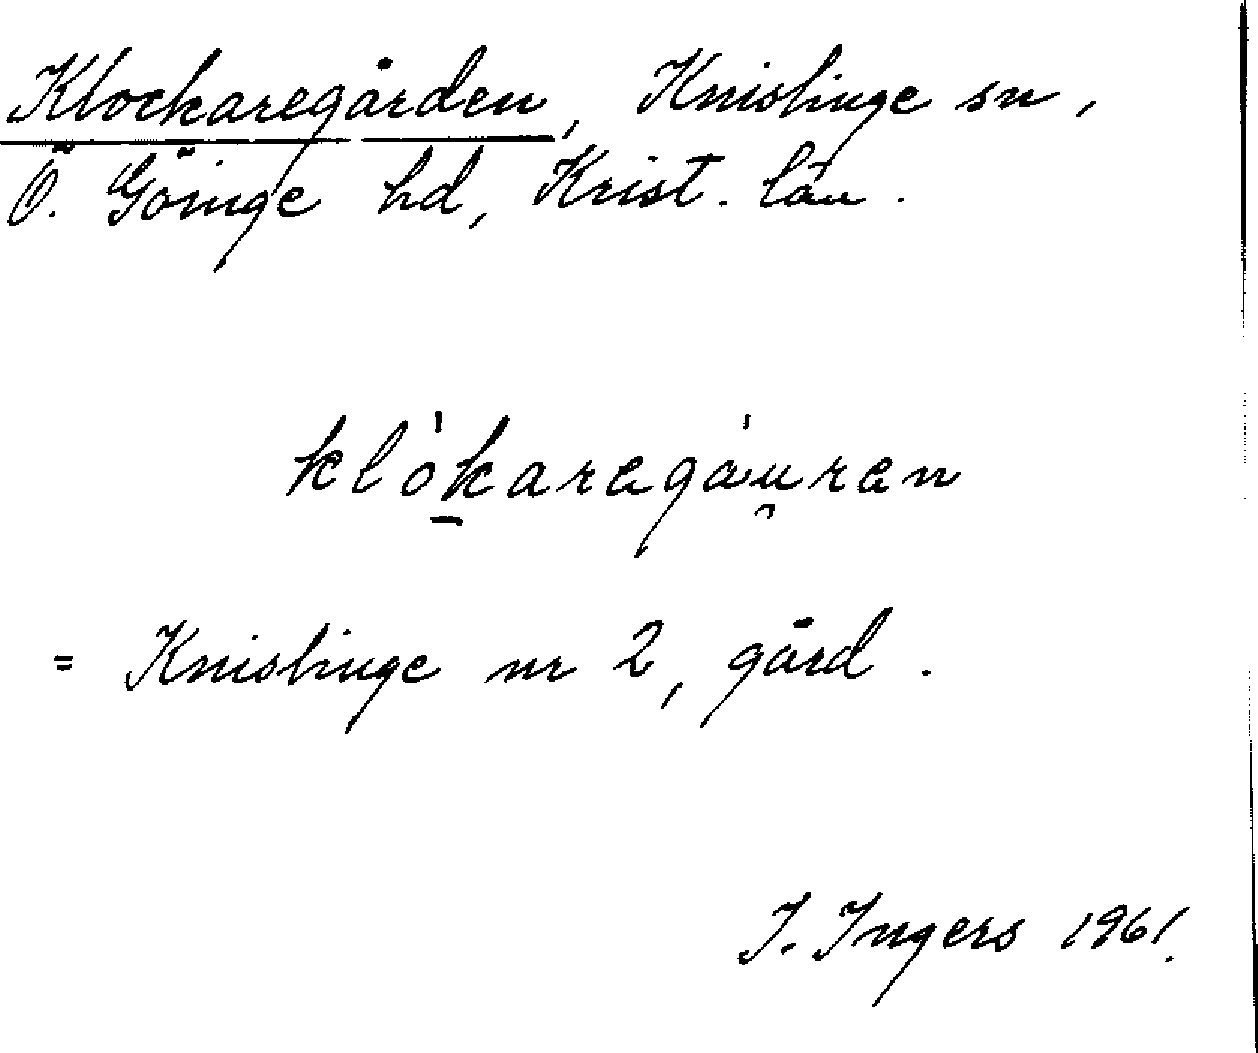 Klockaregården, Knislinge sn,
Ö. Göinge hd, Krist. län.
klò̱karegàu̯ren
= Knislinge nr 2, gård.
I. Ingers 1961.